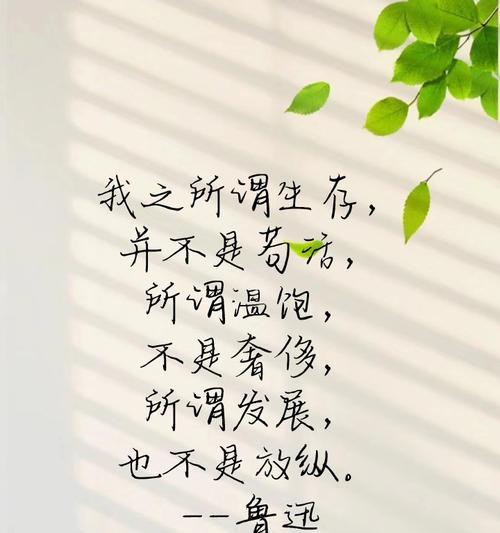 我之所谓生存，
并不是苟活，
所谓温饱，
不是奢侈，
所谓发展，
也不是放纵。
--鲁迅